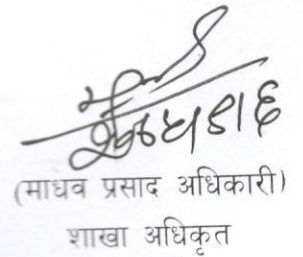 (माधव प्रसाद अधिकारी)
शाखा अधिकृत